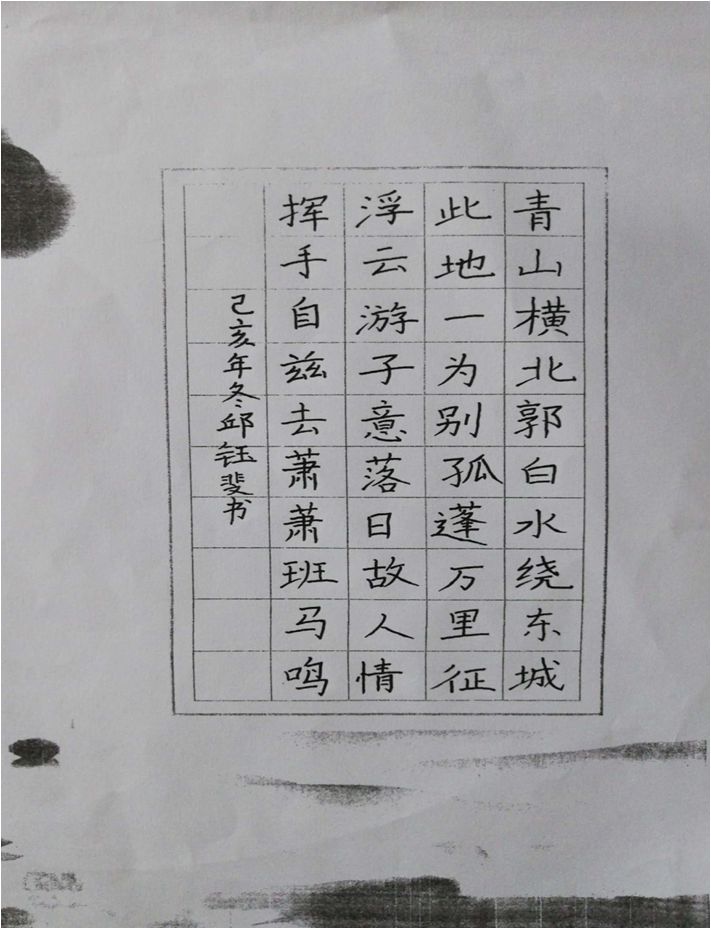 青山横北郭白水绕东城
此地一为别孤蓬万里征
浮云游子意落日故人情
挥手自兹去萧萧班马鸣
己亥年冬邱钰斐书